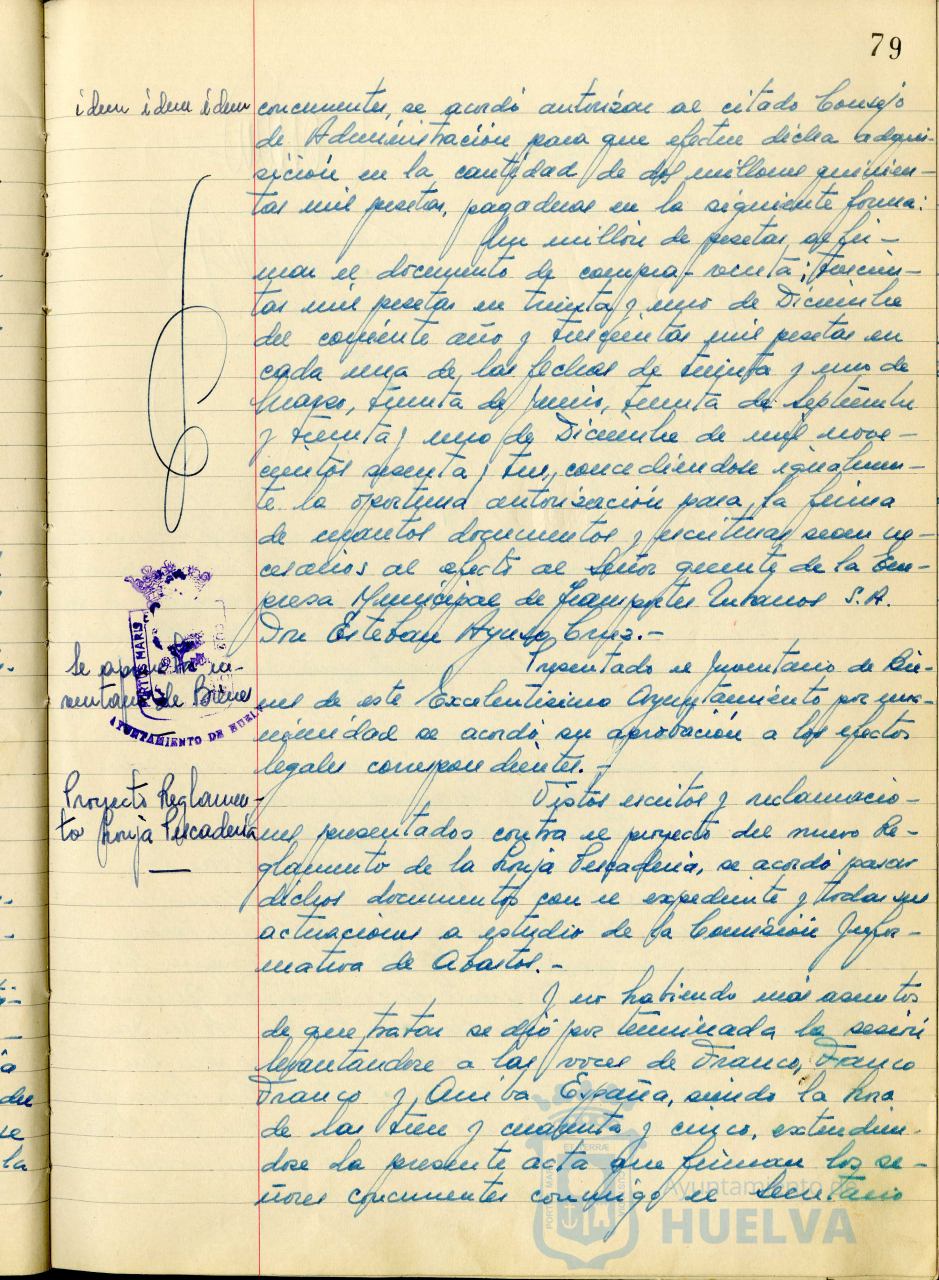 79
idem idem idem
concurrentes, se acordó autorizar al citado Consejo
de Administración para que efectue dicha adqui-
sición en la cantidad de dos millones quinien-
tas mil pesetas, pagaderas en la siguiente forma:
Un millón de pesetas al fir-
mar el documento de compra-venta; trescien-
tas mil pesetas en treinta y uno de Diciembre
del corriente año y trescientas mil pesetas en
cada una de las fechas de treinta y uno de
Marzo, treinta de Junio, treinta de Septiembre
y treinta y uno de Diciembre de mil nove-
cientos sesenta y tres, concediendose igualmen-
te la oportuna autorización para la firma
de cuantos documentos y escrituras sean ne-
cesarios al efecto al Señor gerente de la Em-
presa Municipal de Transportes Urbanos S.A.
Don Esteban Ayuso Cruz.-
Se aprueba in-
ventario de Bienes
Presentado el Inventario de Bie-
nes de este Excelentísimo Ayuntamiento por una-
nimidad se acordó su aprobación a los efectos
legales correspondientes.-
Proyecto Reglamen-
to Lonja Pescadería
Vistos escritos y reclamacio-
nes presentados contra el proyecto del nuevo Re-
glamento de la Lonja Pescadería, se acordó pasar
dichos documentos con el expediente y todas sus
actuaciones a estudio de la Comisión Infor-
mativa de Abastos.-
Y no habiendo más asuntos
de que tratar se dió por terminada la sesión
levantandose a las voces de Franco, Franco
Franco y Arriba España, siendo la hora
de las trece y cuarenta y cinco, extendien-
dose la presente acta que firman los se-
ñores concurrentes conmigo el Secretario
PORTUS MARIS
AYUNTAMIENTO DE HUELVA
Ayuntamiento de
HUELVA